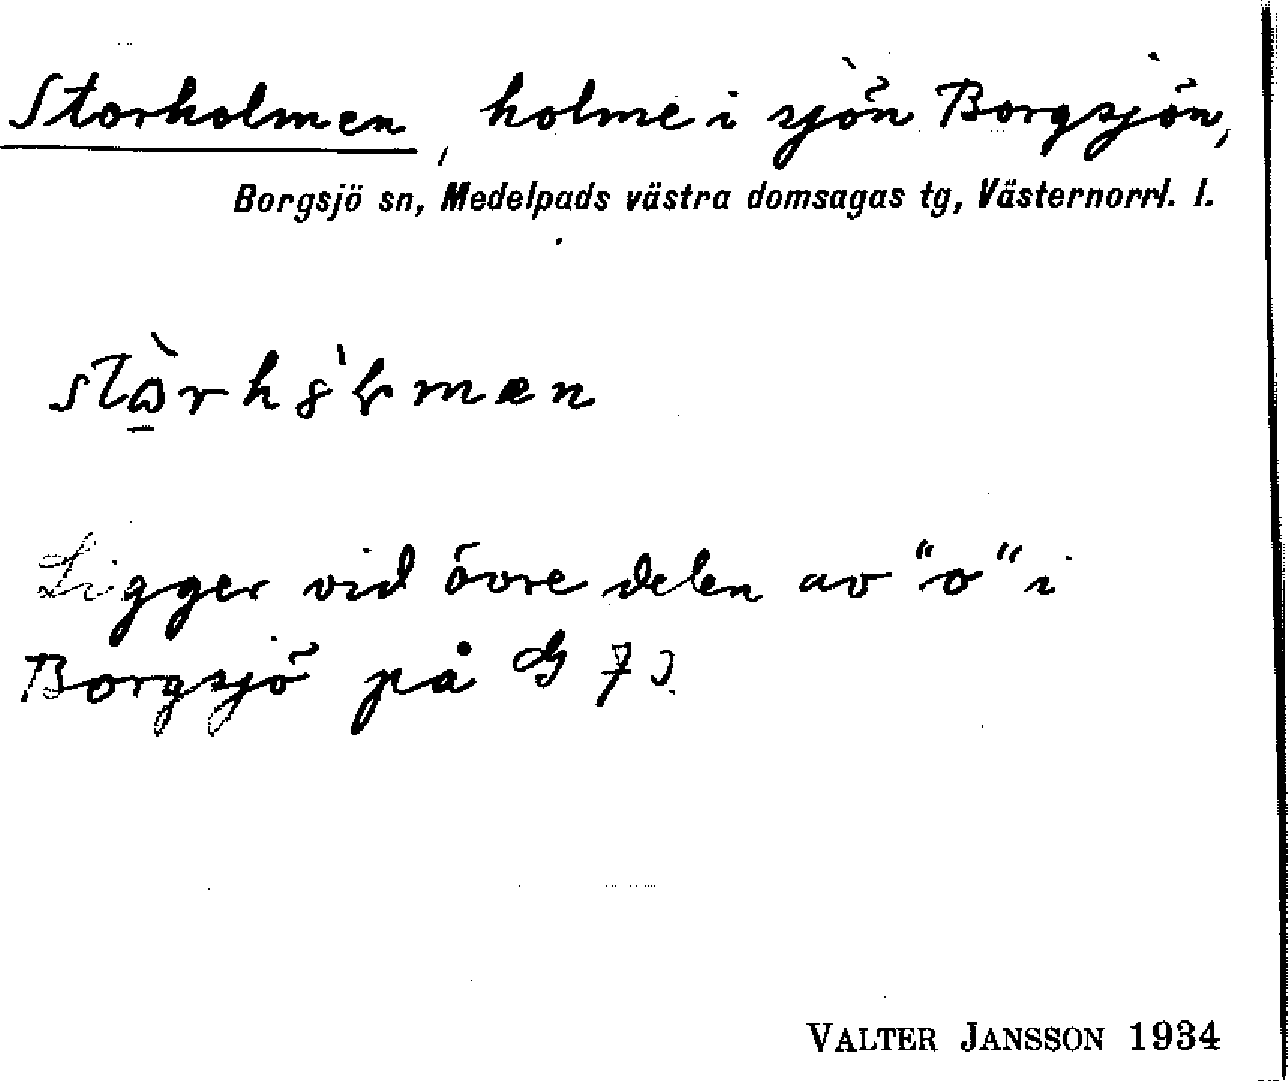 Storholmen, holme i sjön Borgsjön,
Borgsjö sn, Medelpads västra domsagas tg, Västernorrl. l.
Ligger vid övre delen av "o" i
Borgsjö på G 7
VALTER JANSSON 1934